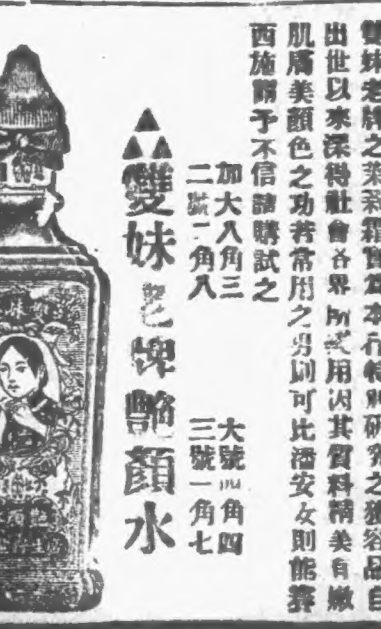 雙妹老牌之茉莉霜實為本行特別研究之美容品自
出世以來深得社會各界所式用因其質料精美有嫩
肌膚美顏色之功若常用之男則可比潘安女則能賽
西施謂予不信請購試之
加大八角三 大號四角四
二號二角八 三號一角七
雙妹老牌艷顏水